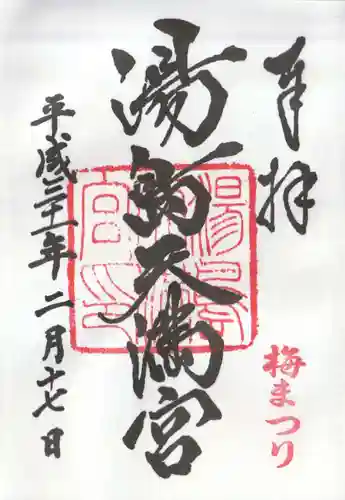 奉拝
湯島天満宮
平成三十一年二月十七日
梅まつり